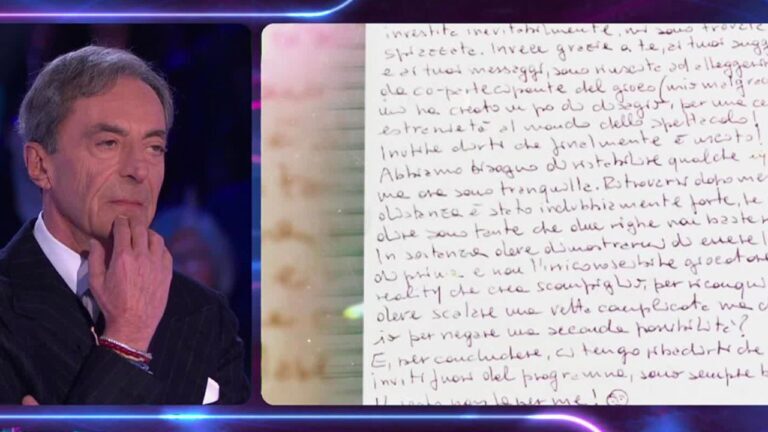 investita inevitabilmente, mi sono trovata
spiazzata. Invece grazie a te, ai tuoi sugg
e ai tuoi messaggi, sono riuscita ad alleggerir
da co-partecipante del gioco (mio malgrado
mi ha creato un po' di disagio, per una ce
estraneità al mondo dello spettacolo!
Inutile dirti che finalmente è uscito!
Abbiamo bisogno di ristabilire qualche
ma ora sono tranquilla. Ritrovarsi dopo me
distanza è stato indubbiamente forte, te
dire sono tante che due righe non baster
In sostanza deve dimostrarmi di essere l
di prima e non l'irriconoscibile giocatore
reality che crea scompiglio, per riconqui
deve scalare una vetta complicata ma c
io per negare una seconda possibilità?
E, per concludere, ci tengo ribadirti che
inviti fuori del programma, sono sempre b
per me!